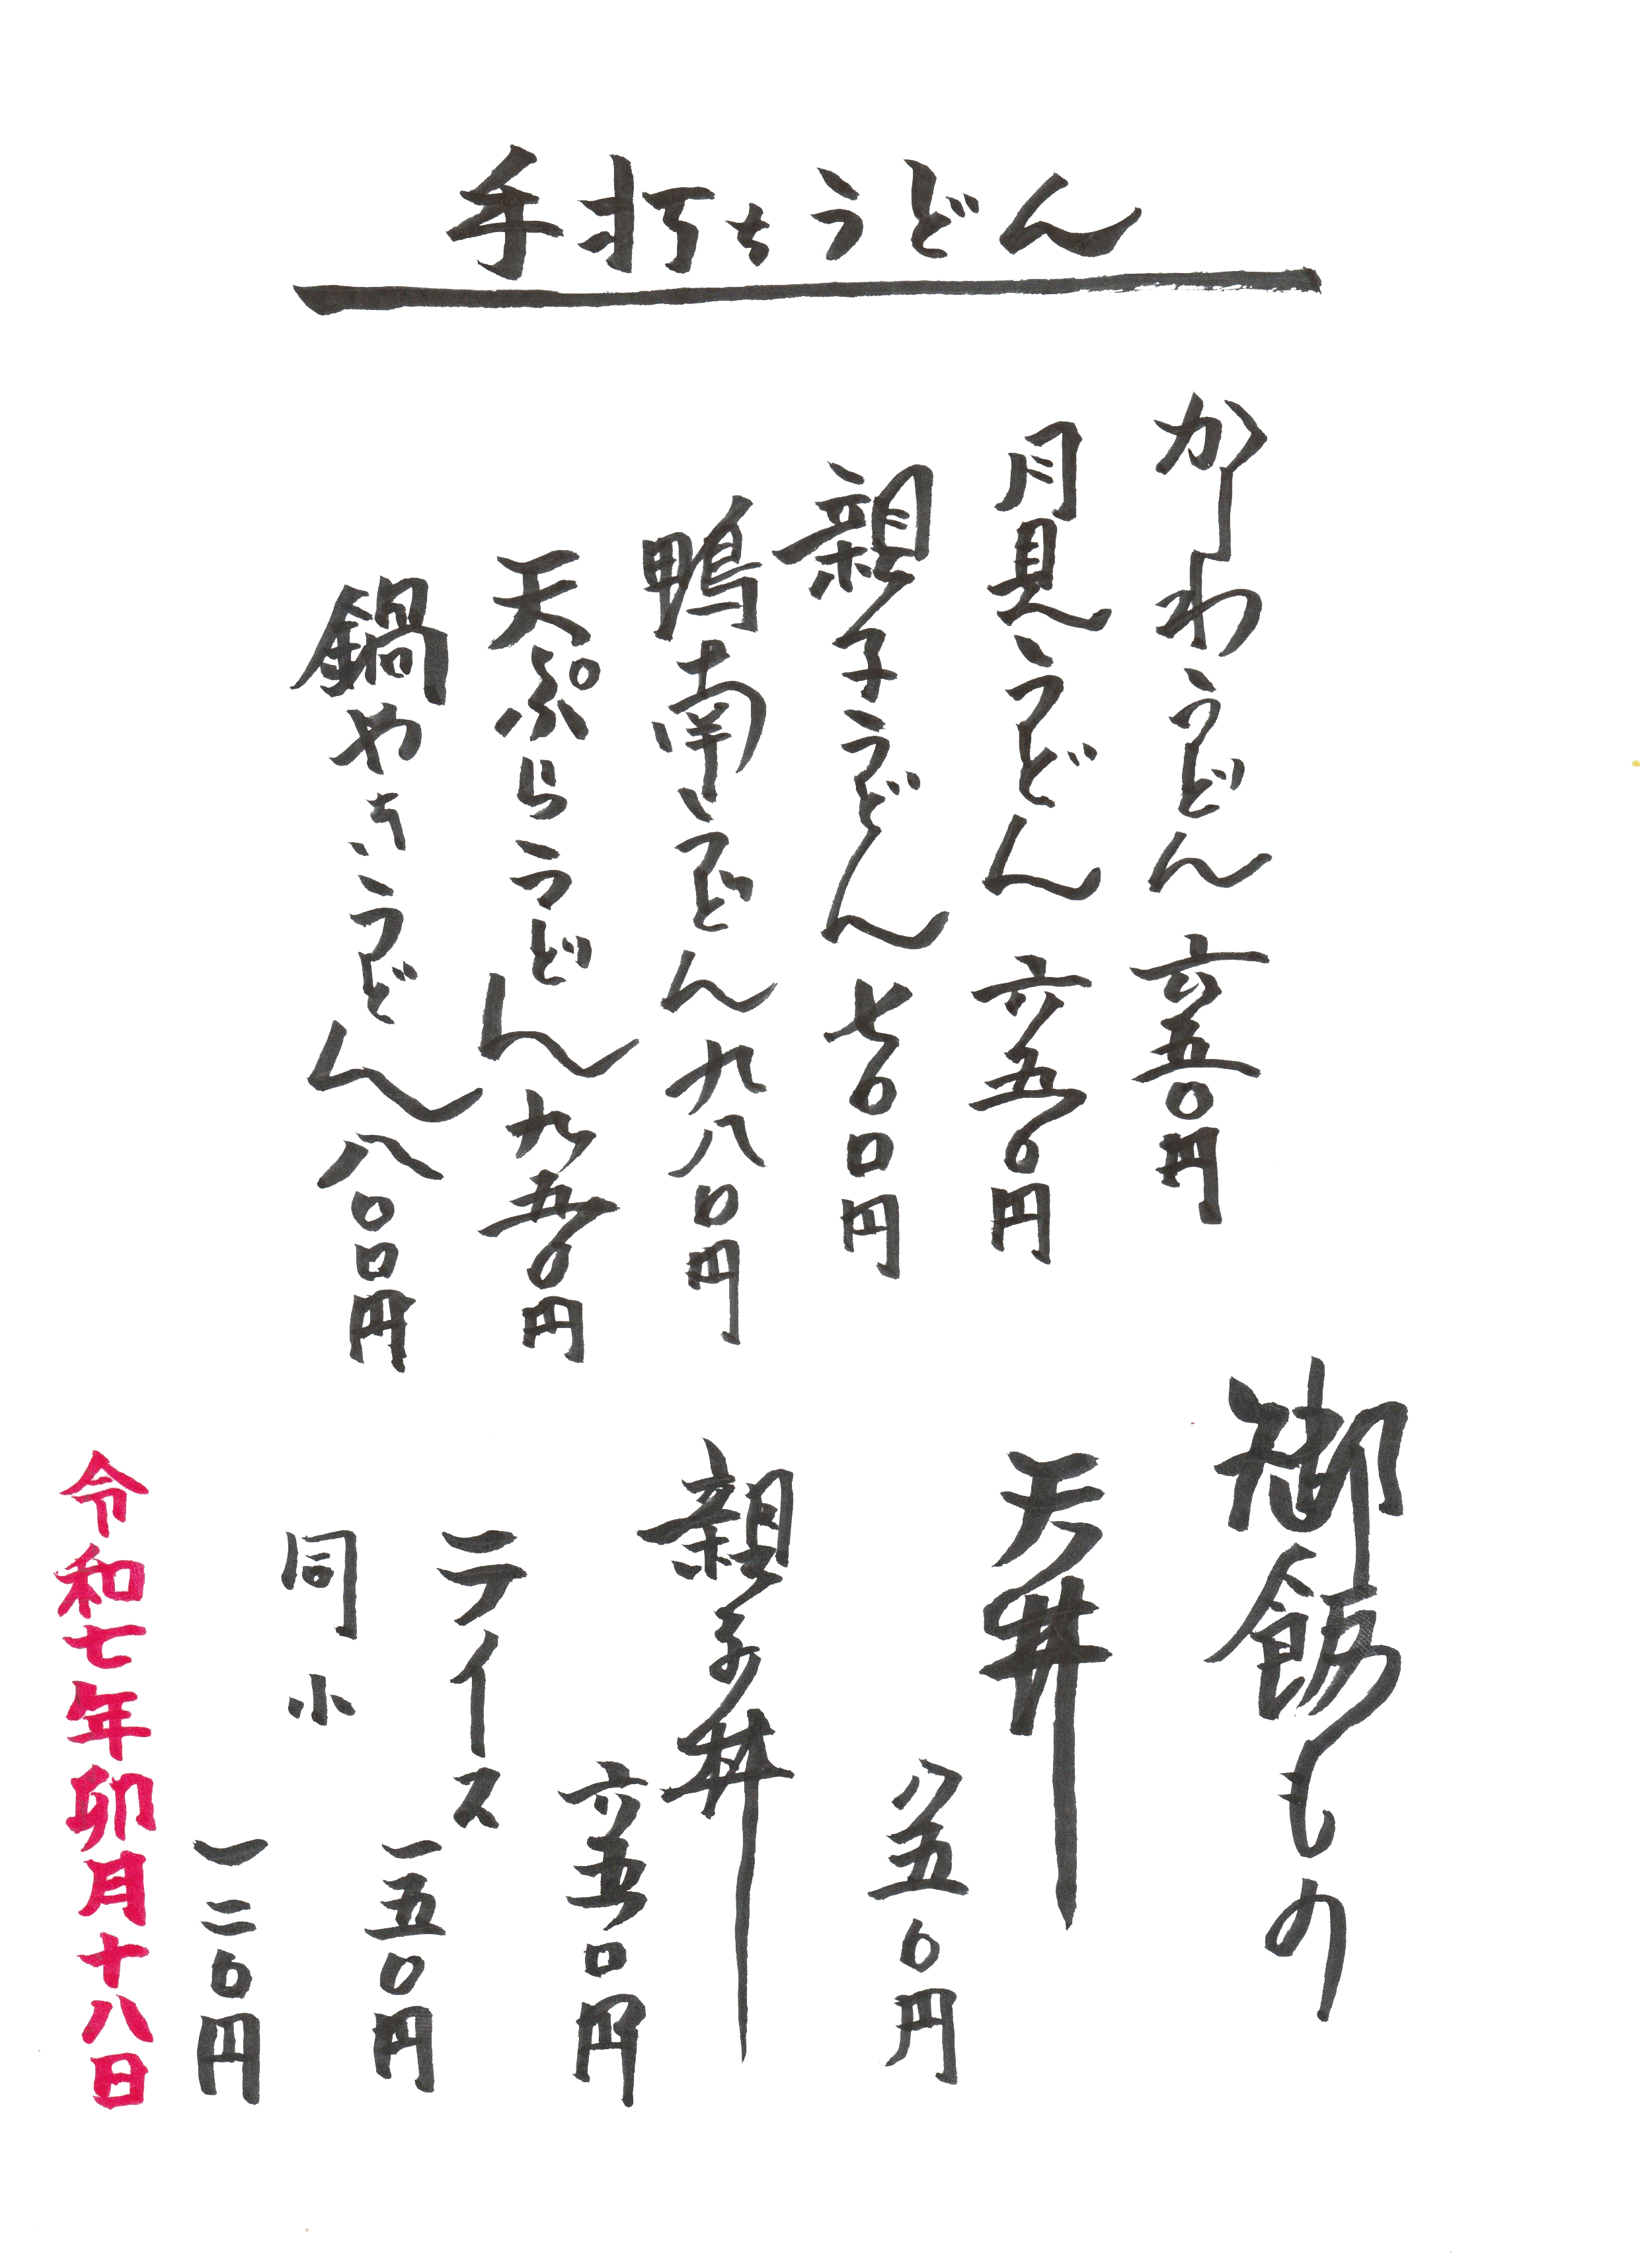 手打ちうどん
かしわうどん 六五〇円
月見うどん 六五〇円
親子うどん 七〇〇円
鴨南うどん 九八〇円
天ぷらうどん 九五〇円
鍋やきうどん 八〇〇円
御飯もの
天丼 八五〇円
親子丼 六五〇円
ライス 一五〇円
同小 一二〇円
令和七年卯月十八日